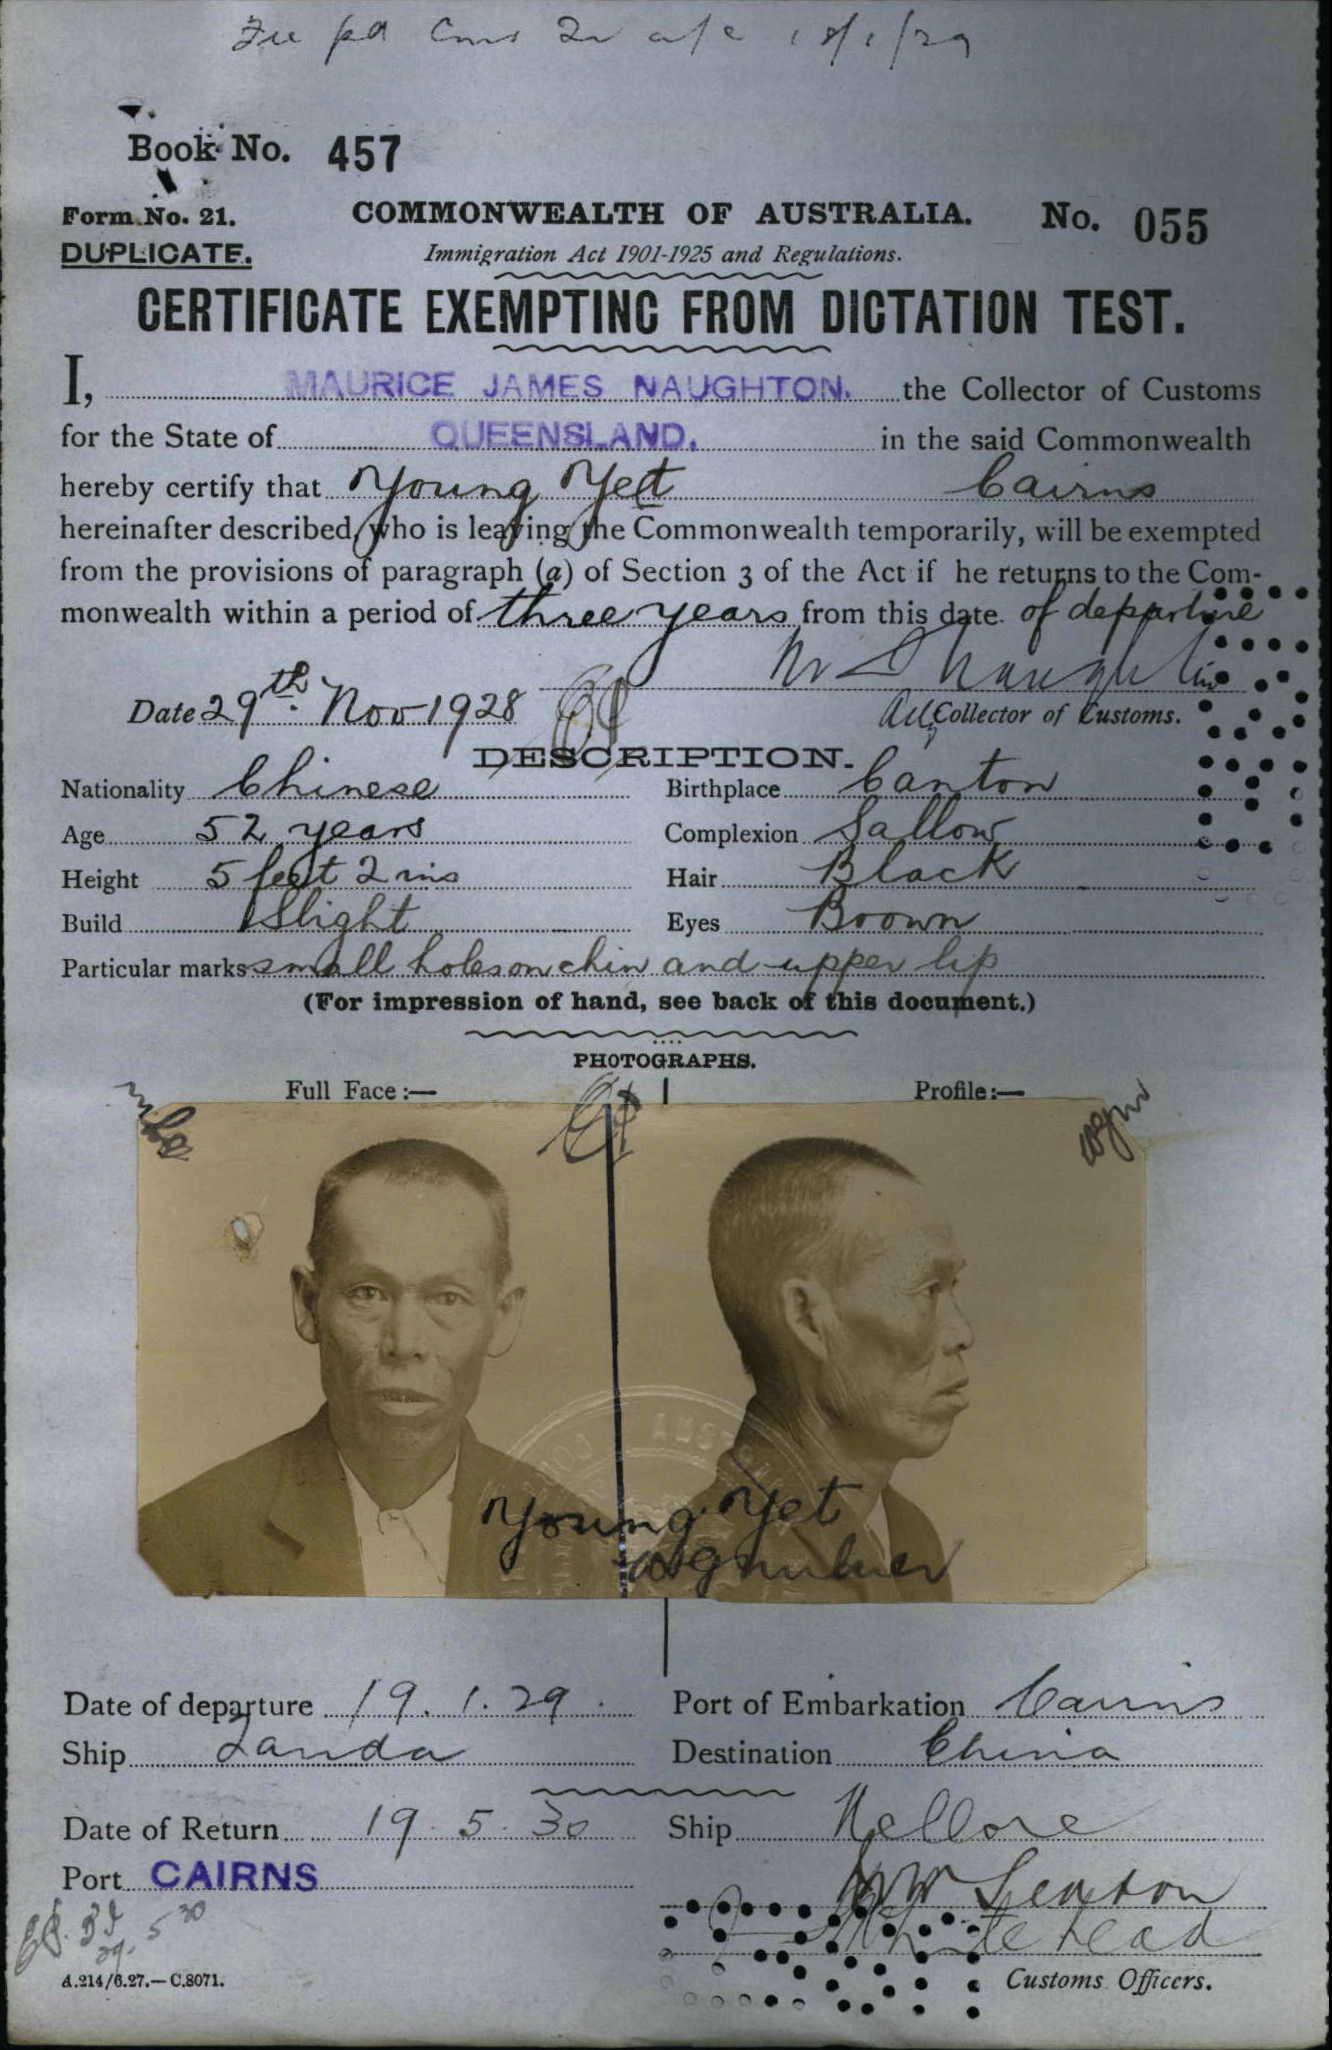 Fee pd Cns 18/1/29
Book No. 457
Form No. 21. COMMONWEALTH OF AUSTRALIA. No. 055
DUPLICATE. Immigration Act 1901-1925 and Regulations.
CERTIFICATE EXEMPTING FROM DICTATION TEST.
I, MAURICE JAMES NAUGHTON. the Collector of Customs
for the State of QUEENSLAND. in the said Commonwealth
hereby certify that Young Yet Cairns
hereinafter described, who is leaving the Commonwealth temporarily, will be exempted
from the provisions of paragraph (a) of Section 3 of the Act if he returns to the Com-
monwealth within a period of three years from this date of departure
Naughton
Date 29th. Nov 1928 Collector of Customs.
DESCRIPTION.
Nationality Chinese Birthplace Canton
Age 52 years Complexion Sallow
Height 5 feet 2 ins Hair Black
Build Slight Eyes Brown
Particular marks small holes on chin and upper lip
(For impression of hand, see back of this document.)
PHOTOGRAPHS.
Full Face:— Profile:—
Young Yet
Date of departure 19.1.29. Port of Embarkation Cairns
Ship Tanda Destination China
Date of Return 19.5.30 Ship Nellore
Port CAIRNS Sexton
Whitehead
A.214/6.27.—C.8071. Customs Officers.